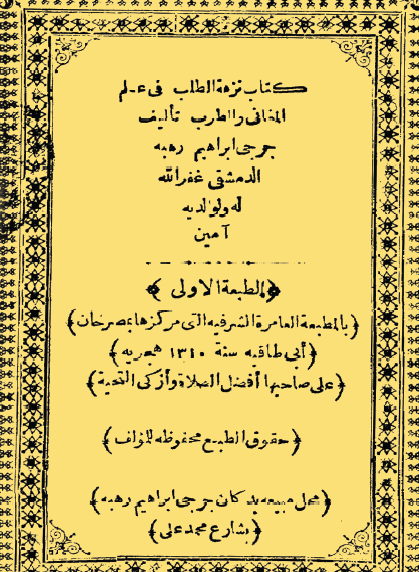 كتاب نزهة الطلب فى علم
المغانى والطرب تأليف
جرجى ابراهيم رهبه
الدمشقى غفر الله
له ولوالديه
آمين
﴿الطبعة الاولى﴾
﴿بالمطبعة العامرة الشرفيه التى مركزها بمصر خان﴾
﴿أبى طاقيه سنة ١٣١٠ هجريه﴾
﴿على صاحبها أفضل الصلاة وأزكى التحية﴾
﴿حقوق الطبع محفوظه للمؤلف﴾
﴿محل مبيعه بدكان جرجى ابراهيم رهبه﴾
﴿بشارع محمد على﴾